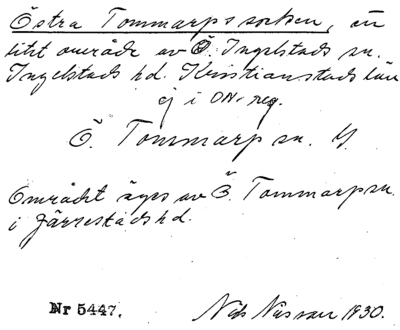 Östra Tommarps socken, en
litet område av Ö. Ingelstads sn.
Ingelstads hd. Kristianstads län
ej i ON-reg.
Ö. Tommarp sn.
Området äges av Ö. Tommarp sn.
i Järrestads hd.
Nr 5447. Nils Nilsson 1930.